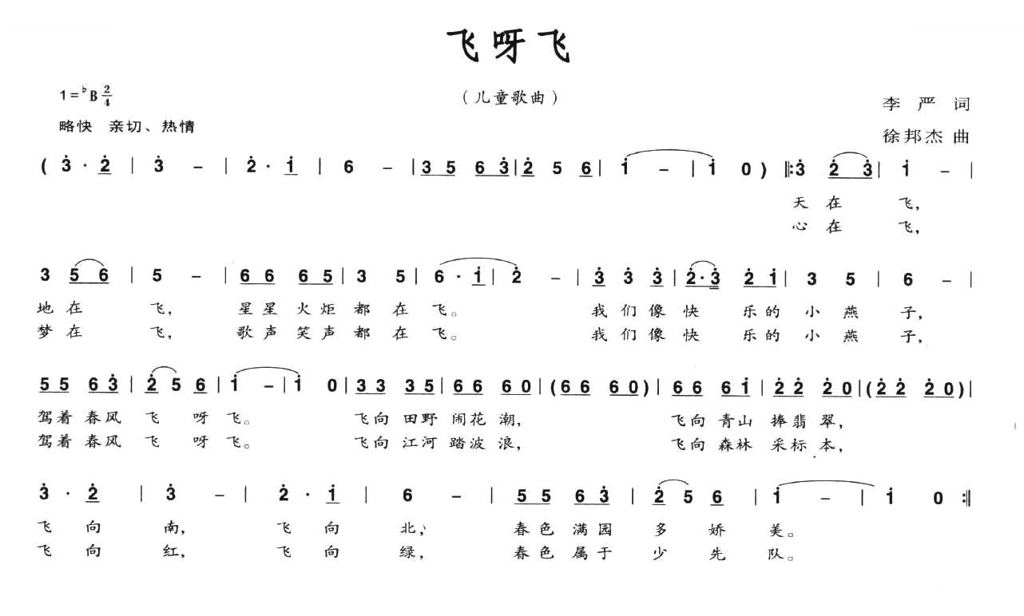 飞呀飞
（儿童歌曲）
1=♭B 2/4
李严 词
略快 亲切、热情
徐邦杰 曲
( 3̇ · 2̇ | 3̇ – | 2̇ · 1̇ | 6 – | 3 5 6 3̇ | 2̇ 5 6 | 1̇ – | 1̇ 0 ) ‖: 3̇ 2̇ 3̇ | 1̇ – |
天 在 飞，
心 在 飞，
3 5 6 | 5 – | 6 6 6 5 | 3 5 | 6 · 1̇ | 2̇ – | 3̇ 3̇ 3̇ | 2̇ · 3̇ 2̇ 1̇ | 3 5 | 6 – |
地 在 飞， 星 星 火 炬 都 在 飞。 我 们 像 快 乐 的 小 燕 子，
梦 在 飞， 歌 声 笑 声 都 在 飞。 我 们 像 快 乐 的 小 燕 子，
5 5 6 3̇ | 2̇ 5 6 | 1̇ – | 1̇ 0 | 3 3 3 5 | 6 6 6 0 | ( 6 6 6 0 ) | 6 6 6 1̇ | 2̇ 2̇ 2̇ 0 | ( 2̇ 2̇ 2̇ 0 ) |
驾着 春风 飞 呀 飞。 飞向 田野 闹花 潮， 飞向 青山 捧翡 翠，
驾着 春风 飞 呀 飞。 飞向 江河 踏波 浪， 飞向 森林 采标 本，
3̇ · 2̇ | 3̇ – | 2̇ · 1̇ | 6 – | 5 5 6 3̇ | 2̇ 5 6 | 1̇ – | 1̇ 0 :‖
飞 向 南， 飞 向 北； 春 色 满 园 多 娇 美。
飞 向 红， 飞 向 绿， 春 色 属 于 少 先 队。